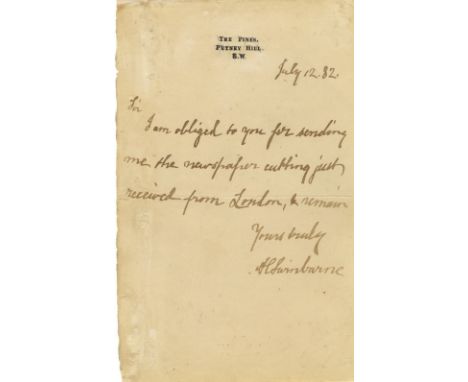 THE PINES,
PUTNEY HILL,
S.W.
July 12. 82.
Sir
I am obliged to you for sending
me the newspaper cutting just
received from London, & remain
Yours truly
ACSwinburne